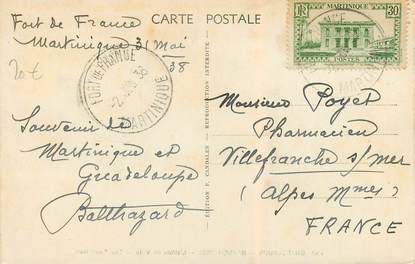 CARTE POSTALE
Fort de France
Martinique 31 Mai
38
20€
FORT DE FRANCE
MARTINIQUE
Souvenir de
Martinique et
Guadeloupe
Balthazard
EDITION F. CANDALEN - REPRODUCTION INTERDITE -
RF MARTINIQUE 30
POSTES
Monsieur Poyet
Pharmacien
Villefranche s/mer
(Alpes Mmes)
FRANCE